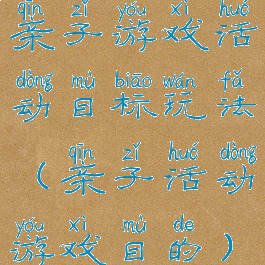 qīn zǐ yóu xì huó
亲子游戏活
dòng mù biāo wán fǎ
动目标玩法
qīn zǐ huó dòng
（亲子活动
yóu xì mù de
游戏目的）